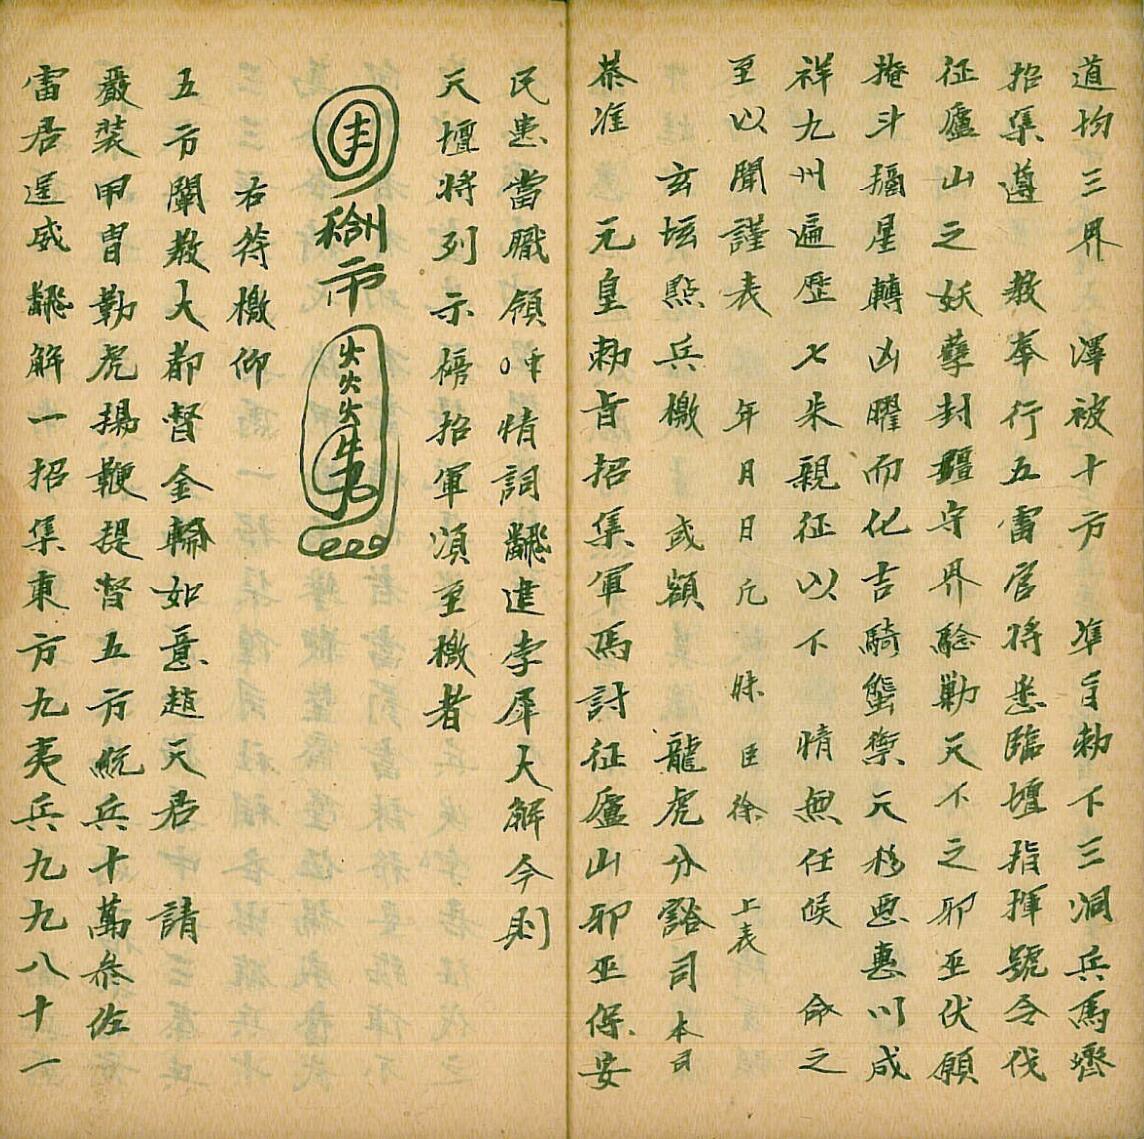 道均三界　澤被十方　準旨勅下三洞兵馬躋
招集遵　教奉行五雷官將悉臨壇指揮號令伐
征廬山之妖孽封疆守界驗勒天下之邪巫伏願
掩斗移星轉凶曜而化吉騎蜇禦天移惡惠以成
祥九州遍歷七朱親征以下　情無任候　命之
至以聞謹表　年　月　日　凡昧　臣　徐　上表
玄壇點兵檄　式額　龍虎分諮司　本司
恭准　元皇勅旨招集軍馬討征廬山邪巫保安
民患當職領呼情詞飜進李犀大解今則
天壇將列示榜招軍須至檄者
右符檄仰
五方闡教大都督金輪如意趙天君　請
嚴裝甲冑勒虎揚鞭提督五方統兵十萬叅佐
雷君逞威飜解一招集東方九夷兵九九八十一